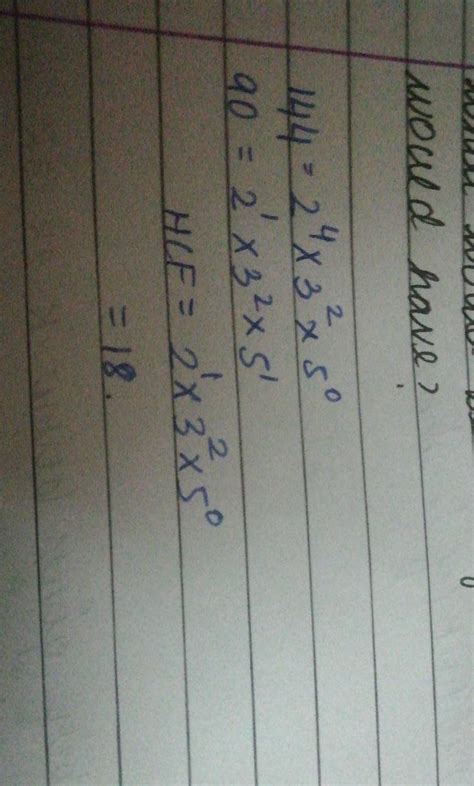 would have?
144 = 2⁴ × 3² × 5⁰
90 = 2¹ × 3² × 5¹
HCF = 2¹ × 3² × 5⁰
= 18.